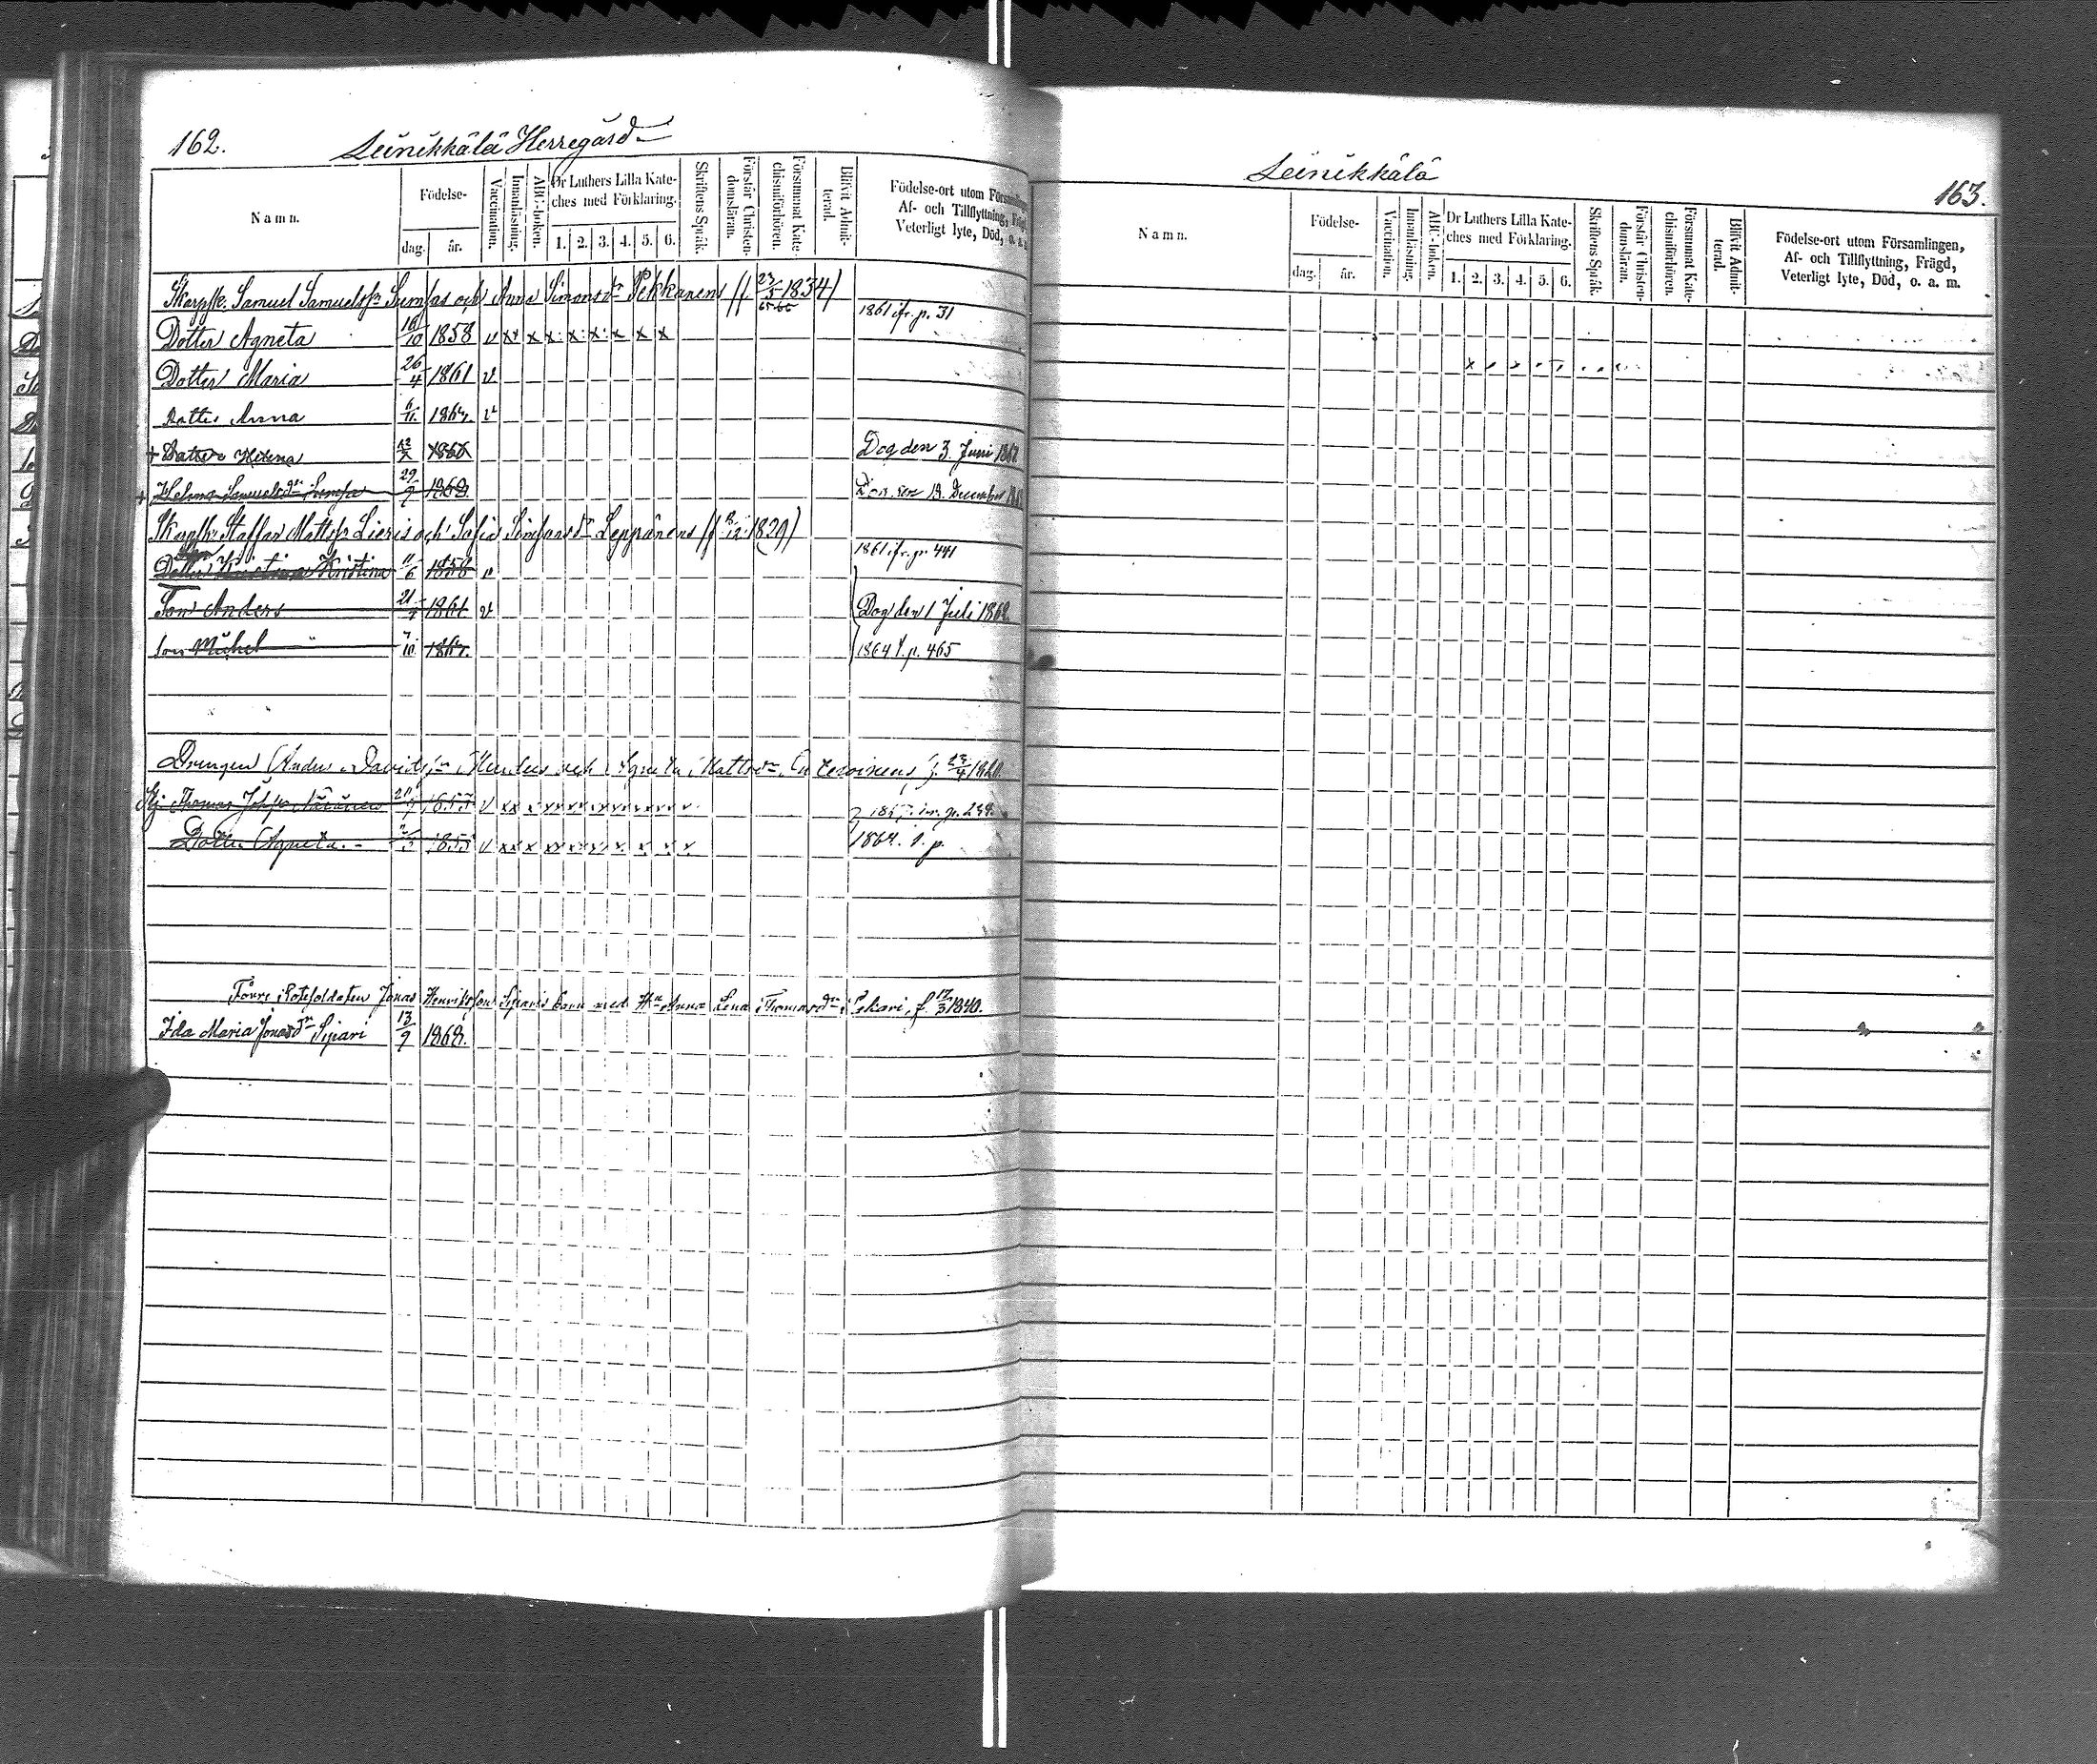 162.
Leinikkälä Herregård
Namn.
Födelse-
dag. år.
Vaccination.
Innanläsning.
ABC-boken.
Dr Luthers Lilla Kate-
ches med Förklaring.
1. 2. 3. 4. 5. 6.
Skriftens Språk.
Förstår Christen-
domsläran.
Försummat Kate-
chismiförhören.
Blifvit Admit-
terad.
Födelse-ort utom Församlingen,
Af- och Tillflyttning, Frägd,
Veterligt lyte, Död, o. a. m.
Skarpsk. Samuel Samuelss:n Sumfas och Anna Simonsd:r Pekkanens (f 23/5 1834)
65-66
1861 ifr. p. 31
Dotter Agneta 16/10 1858 v xx x x x x x x x
Dotter Maria 26/4 1861 v
Dotter Anna 6/11 v
+ Dotter Helena Dog den 3 Juni
+ Helena Samuelsd:r Sumfa 29/9 1868 13 December
Skarpsk. Staffan Mattss:n Lieris och Sofia Simonsd:r Leppänens (f 12 1829)
1861 ifr. p. 441
Dotter Kristina 11/6 1858 v
Son Anders 21/4 1861 v Dog den 1 Juli 1862
son Michel 7/10 1864 f. p. 465
Drengen Anders Davids:n och Agneta Mattsd:r
Thomas 1855 v xx x
Dotter Agneta 1855 v xx x
Förre Rotesoldaten Jonas Henriksson Siparis barn med H:u Anna Lena Thomasd:r Pekari, f 17/3 1840.
Ida Maria Jonasd:r Sipari 13/9 1868.
Leinikkälä
163.
Namn.
Födelse-
dag. år.
Vaccination.
Innanläsning.
ABC-boken.
Dr Luthers Lilla Kate-
ches med Förklaring.
1. 2. 3. 4. 5. 6.
Skriftens Språk.
Förstår Christen-
domsläran.
Försummat Kate-
chismiförhören.
Blifvit Admit-
terad.
Födelse-ort utom Församlingen,
Af- och Tillflyttning, Frägd,
Veterligt lyte, Död, o. a. m.